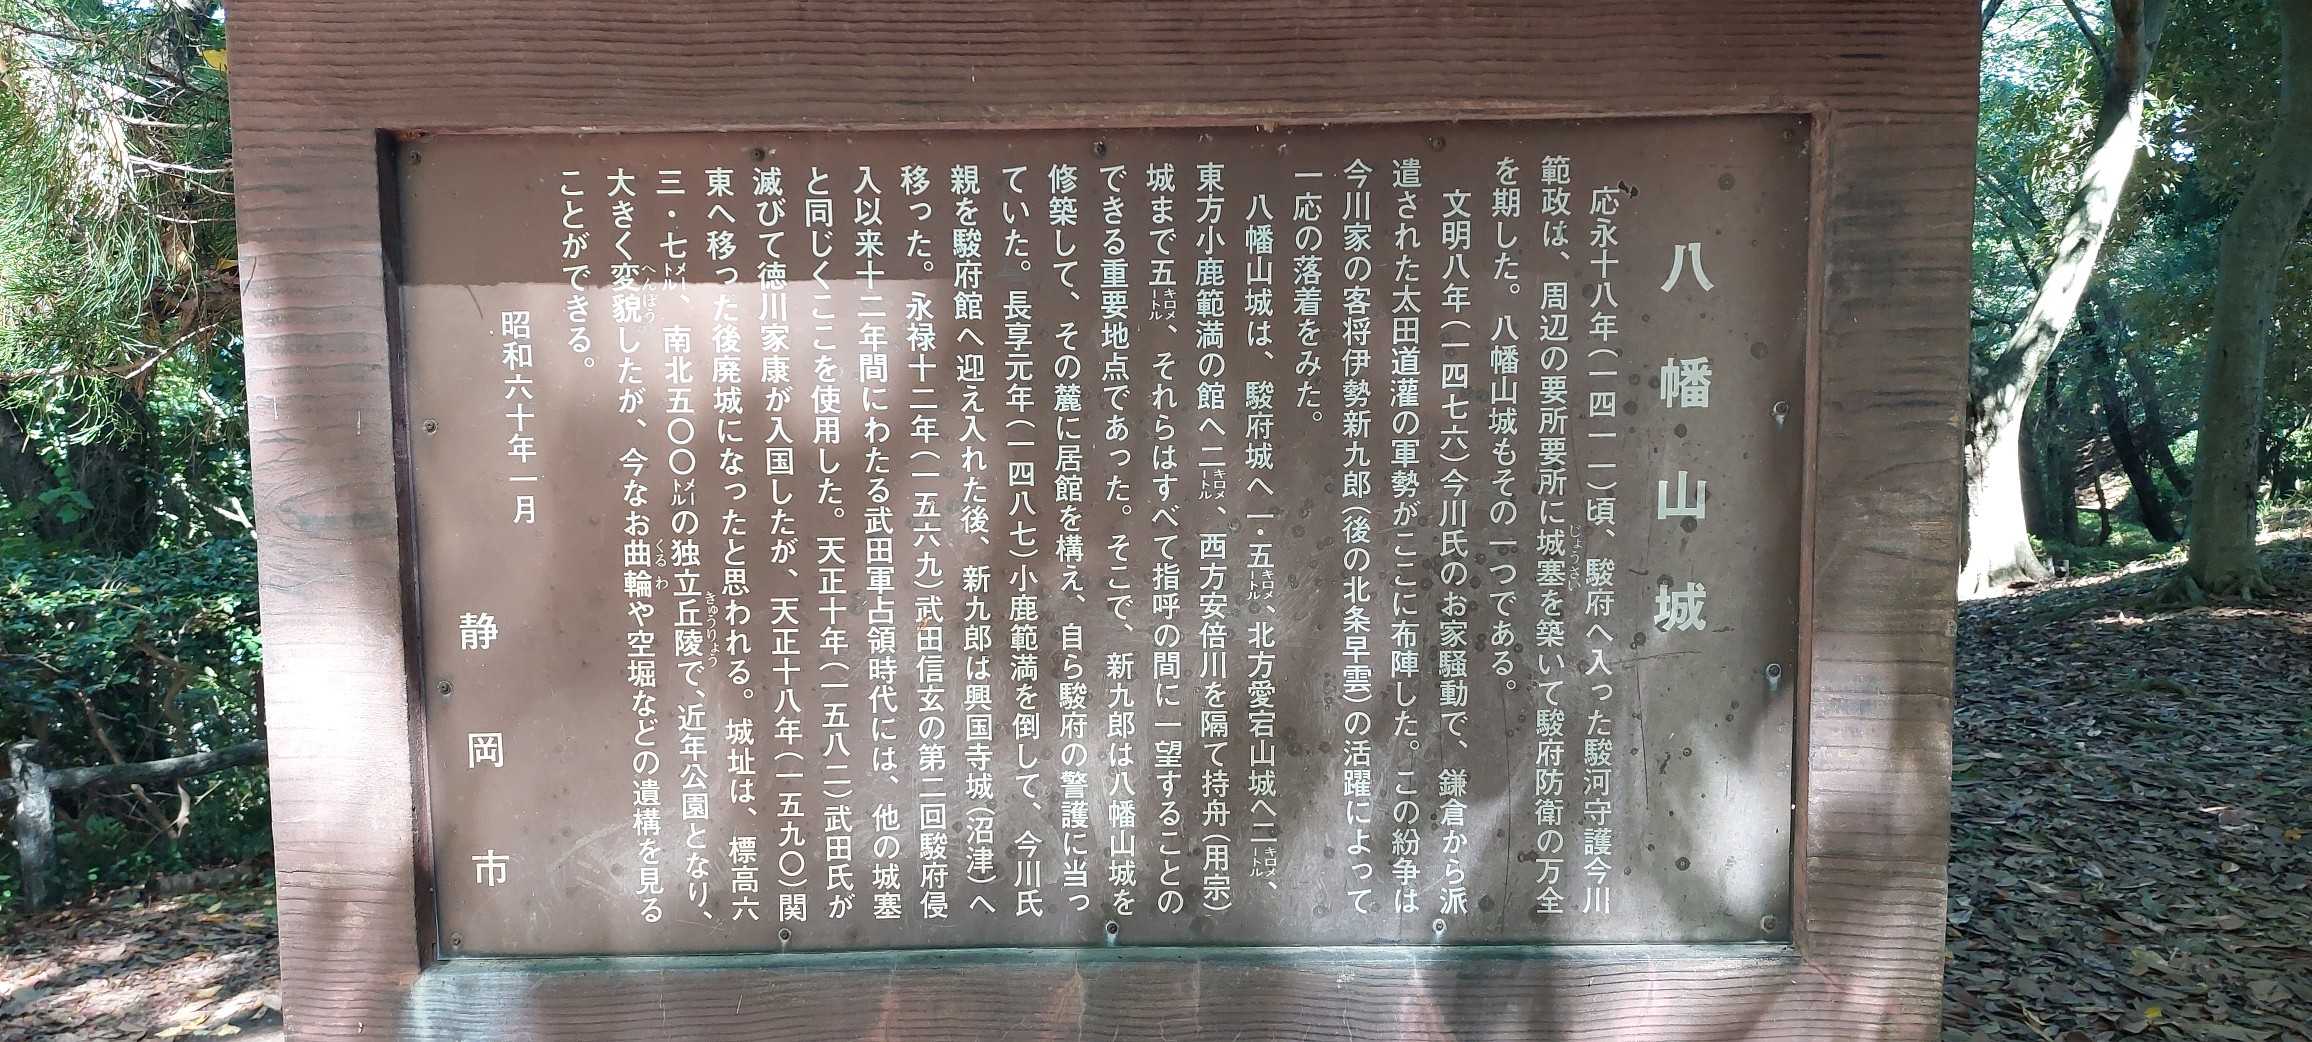 八幡山城
応永十八年(一四一一)頃、駿府へ入った駿河守護今川
範政は、周辺の要所要所に城塞を築いて駿府防衛の万全
じょうさい
を期した。八幡山城もその一つである。
文明八年(一四七六)今川氏のお家騒動で、鎌倉から派
遣された太田道灌の軍勢がここに布陣した。この紛争は
今川家の客将伊勢新九郎(後の北条早雲)の活躍によって
一応の落着をみた。
八幡山城は、駿府城へ一・五キロメートル、北方愛宕山城へ二キロメートル、
東方小鹿範満の館へ二キロメートル、西方安倍川を隔て持舟(用宗)
城まで五キロメートル、それらはすべて指呼の間に一望することの
できる重要地点であった。そこで、新九郎は八幡山城を
修築して、その麓に居館を構え、自ら駿府の警護に当っ
ていた。長享元年(一四八七)小鹿範満を倒して、今川氏
親を駿府館へ迎え入れた後、新九郎は興国寺城(沼津)へ
移った。永禄十二年(一五六九)武田信玄の第二回駿府侵
入以来十二年間にわたる武田軍占領時代には、他の城塞
と同じくここを使用した。天正十年(一五八二)武田氏が
滅びて徳川家康が入国したが、天正十八年(一五九〇)関
東へ移った後廃城になったと思われる。城址は、標高六
三・七メートル、南北五〇〇メートルの独立丘陵で、近年公園となり、
きゅうりょう
大きく変貌したが、今なお曲輪や空堀などの遺構を見る
へんぼう
くるわ
ことができる。
昭和六十年一月
静岡市